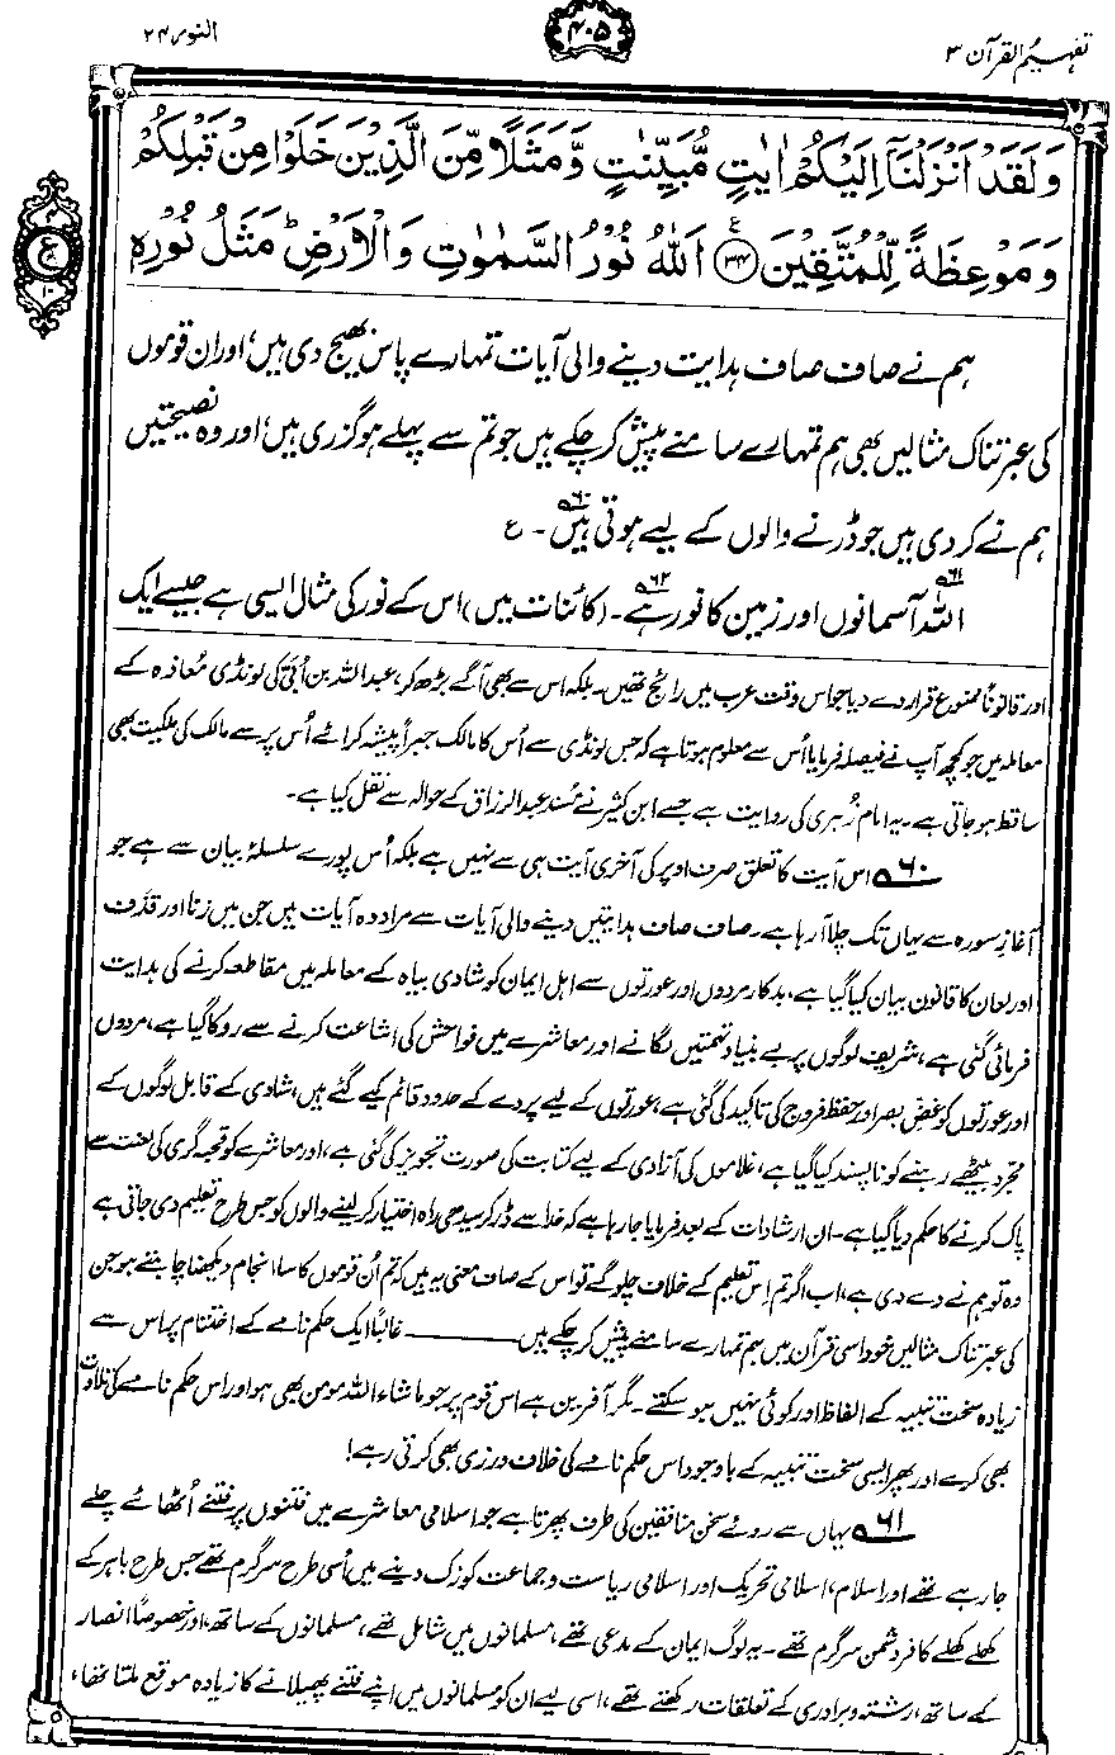 تفہیم القرآن ۳
۴۰۵
النور ۲۴
وَلَقَدْ اَنْزَلْنَآ اِلَيْكُمْ اٰيٰتٍ مُّبَيِّنٰتٍ وَّمَثَلًا مِّنَ الَّذِيْنَ خَلَوْا مِنْ قَبْلِكُمْ
وَمَوْعِظَةً لِّلْمُتَّقِيْنَ ۳۴ ع اَللّٰهُ نُوْرُ السَّمٰوٰتِ وَالْاَرْضِ ط مَثَلُ نُوْرِهٖ
ع
۱۰
ہم نے صاف صاف ہدایت دینے والی آیات تمہارے پاس بھیج دی ہیں، اور ان قوموں
کی عبرتناک مثالیں بھی ہم تمہارے سامنے پیش کر چکے ہیں جو تم سے پہلے ہو گزری ہیں، اور وہ نصیحتیں
ہم نے کر دی ہیں جو ڈرنے والوں کے لیے ہوتی ہیں۶۰۔ ع
اللہ۶۱ آسمانوں اور زمین کا نور ہے۶۲۔ (کائنات میں) اس کے نور کی مثال ایسی ہے جیسے ایک
اور قانوناً ممنوع قرار دے دیا جو اس وقت عرب میں رائج تھیں۔ بلکہ اس سے بھی آگے بڑھ کر، عبداللہ بن اُبَیّ کی لونڈی مُعاذہ کے
معاملہ میں جو کچھ آپ نے فیصلہ فرمایا اُس سے معلوم ہوتا ہے کہ جس لونڈی سے اُس کا مالک جبراً پیشہ کرائے اُس پر سے مالک کی ملکیت بھی
ساقط ہو جاتی ہے۔ یہ امام زُہری کی روایت ہے جسے ابن کثیر نے مُسند عبدالرزاق کے حوالہ سے نقل کیا ہے۔
۶۰ اس آیت کا تعلق صرف اوپر کی آخری آیت ہی سے نہیں ہے بلکہ اُس پورے سلسلۂ بیان سے ہے جو
آغازِ سورہ سے یہاں تک چلا آ رہا ہے۔ صاف صاف ہدایتیں دینے والی آیات سے مراد وہ آیات ہیں جن میں زنا اور قذف
اور لعان کا قانون بیان کیا گیا ہے، بدکار مردوں اور عورتوں سے اہل ایمان کو شادی بیاہ کے معاملہ میں مقاطعہ کرنے کی ہدایت
فرمائی گئی ہے، شریف لوگوں پر بے بنیاد تہمتیں لگانے اور معاشرے میں فواحش کی اشاعت کرنے سے روکا گیا ہے، مردوں
اور عورتوں کو غضِّ بصر اور حفظِ فروج کی تاکید کی گئی ہے، عورتوں کے لیے پردے کے حدود قائم کیے گئے ہیں، شادی کے قابل لوگوں کے
مجرّد بیٹھے رہنے کو ناپسند کیا گیا ہے، غلاموں کی آزادی کے لیے کتابت کی صورت تجویز کی گئی ہے، اور معاشرے کو قحبہ گری کی لعنت سے
پاک کرنے کا حکم دیا گیا ہے۔ ان ارشادات کے بعد فرمایا جا رہا ہے کہ خدا سے ڈر کر سیدھی راہ اختیار کر لینے والوں کو جس طرح تعلیم دی جاتی ہے
وہ تو ہم نے دے دی ہے، اب اگر تم اِس تعلیم کے خلاف چلو گے تو اس کے صاف معنی یہ ہیں کہ تم اُن قوموں کا سا انجام دیکھنا چاہتے ہو جن
کی عبرتناک مثالیں خود اسی قرآن میں ہم تمہارے سامنے پیش کر چکے ہیں ـــــــ غالباً ایک حکم نامے کے اختتام پر اس سے
زیادہ سخت تنبیہ کے الفاظ اور کوئی نہیں ہو سکتے۔ مگر آفرین ہے اس قوم پر جو ماشاء اللہ مومن بھی ہو اور اس حکم نامے کی تلاوت
بھی کرے اور پھر ایسی سخت تنبیہ کے باوجود اس حکم نامے کی خلاف ورزی بھی کرتی رہے!
۶۱ یہاں سے روئے سخن منافقین کی طرف پھرتا ہے جو اسلامی معاشرے میں فتنوں پر فتنے اُٹھائے چلے
جا رہے تھے اور اسلام، اسلامی تحریک اور اسلامی ریاست و جماعت کو زک دینے میں اُسی طرح سرگرم تھے جس طرح باہر کے
کھلے کھلے کافر دشمن سرگرم تھے۔ یہ لوگ ایمان کے مدعی تھے، مسلمانوں میں شامل تھے، مسلمانوں کے ساتھ، اور خصوصاً انصار
کے ساتھ، رشتہ و برادری کے تعلقات رکھتے تھے، اسی لیے ان کو مسلمانوں میں اپنے فتنے پھیلانے کا زیادہ موقع ملتا تھا،